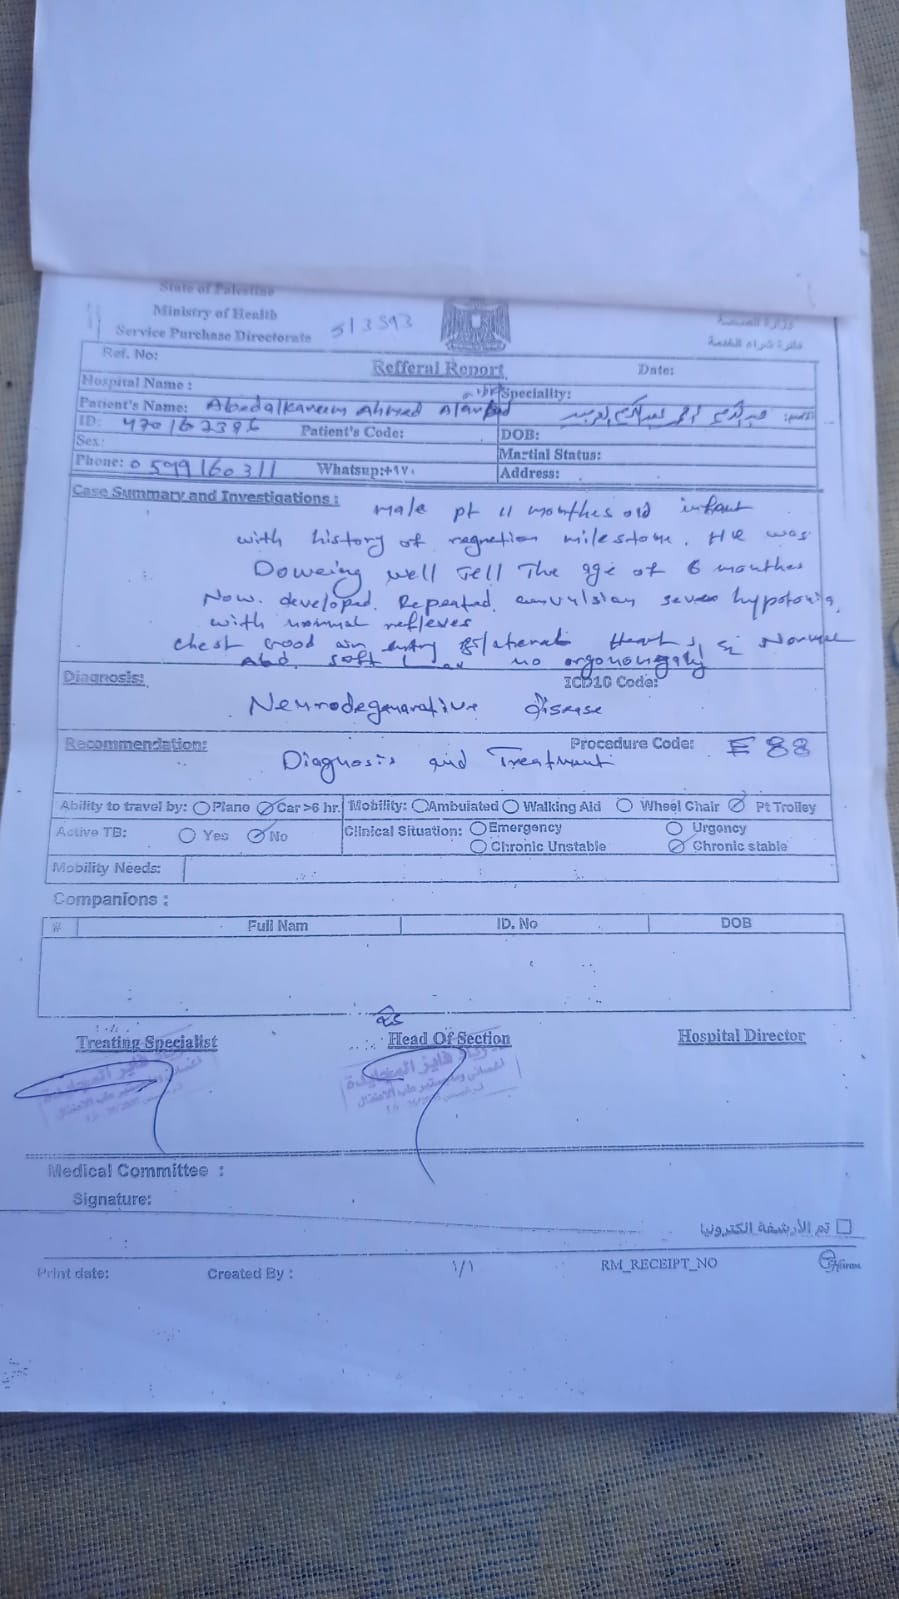 State of Palestine
Ministry of Health
Service Purchase Directorate
513593
وزارة الصحة
دائرة شراء الخدمة
Ref. No:
Refferal Report
Date:
Hospital Name :
Speciality:
Patient's Name: Abedalkareem Ahmed
الاسم: عبد الكريم احمد عبد الكريم
ID: 470162396
Patient's Code:
DOB:
Sex:
Martial Status:
Phone: 0599160311
Whatsup:+٩٧٠
Address:
Case Summary and Investigations :
Male pt 11 monthes old infant
with history of regnetion milestone. He was
Doweing well Tell The age of 6 monthes
Now. developed. Repeated. convulsion sever hypotonia
with normal reflexes
chest Good air entry Bilateral Heart Normal
Abd. soft Lax no orgonomgaly
Diagnosis:
ICD10 Code:
Neurodegenarative disease
Recommendation:
Procedure Code: E 88
Diagnosis and Treatment
Ability to travel by: Plane Car >6 hr. Mobility: Ambulated Walking Aid Wheel Chair Pt Trolley
Active TB: Yes No Clinical Situation: Emergency Urgency
Chronic Unstable Chronic stable
Mobility Needs:
Companions :
# Full Nam ID. No DOB
Treating Specialist Head Of Section Hospital Director
Medical Committee :
Signature:
تم الأرشفة الكترونيا
Print date: Created By : ١/١ RM_RECEIPT_NO